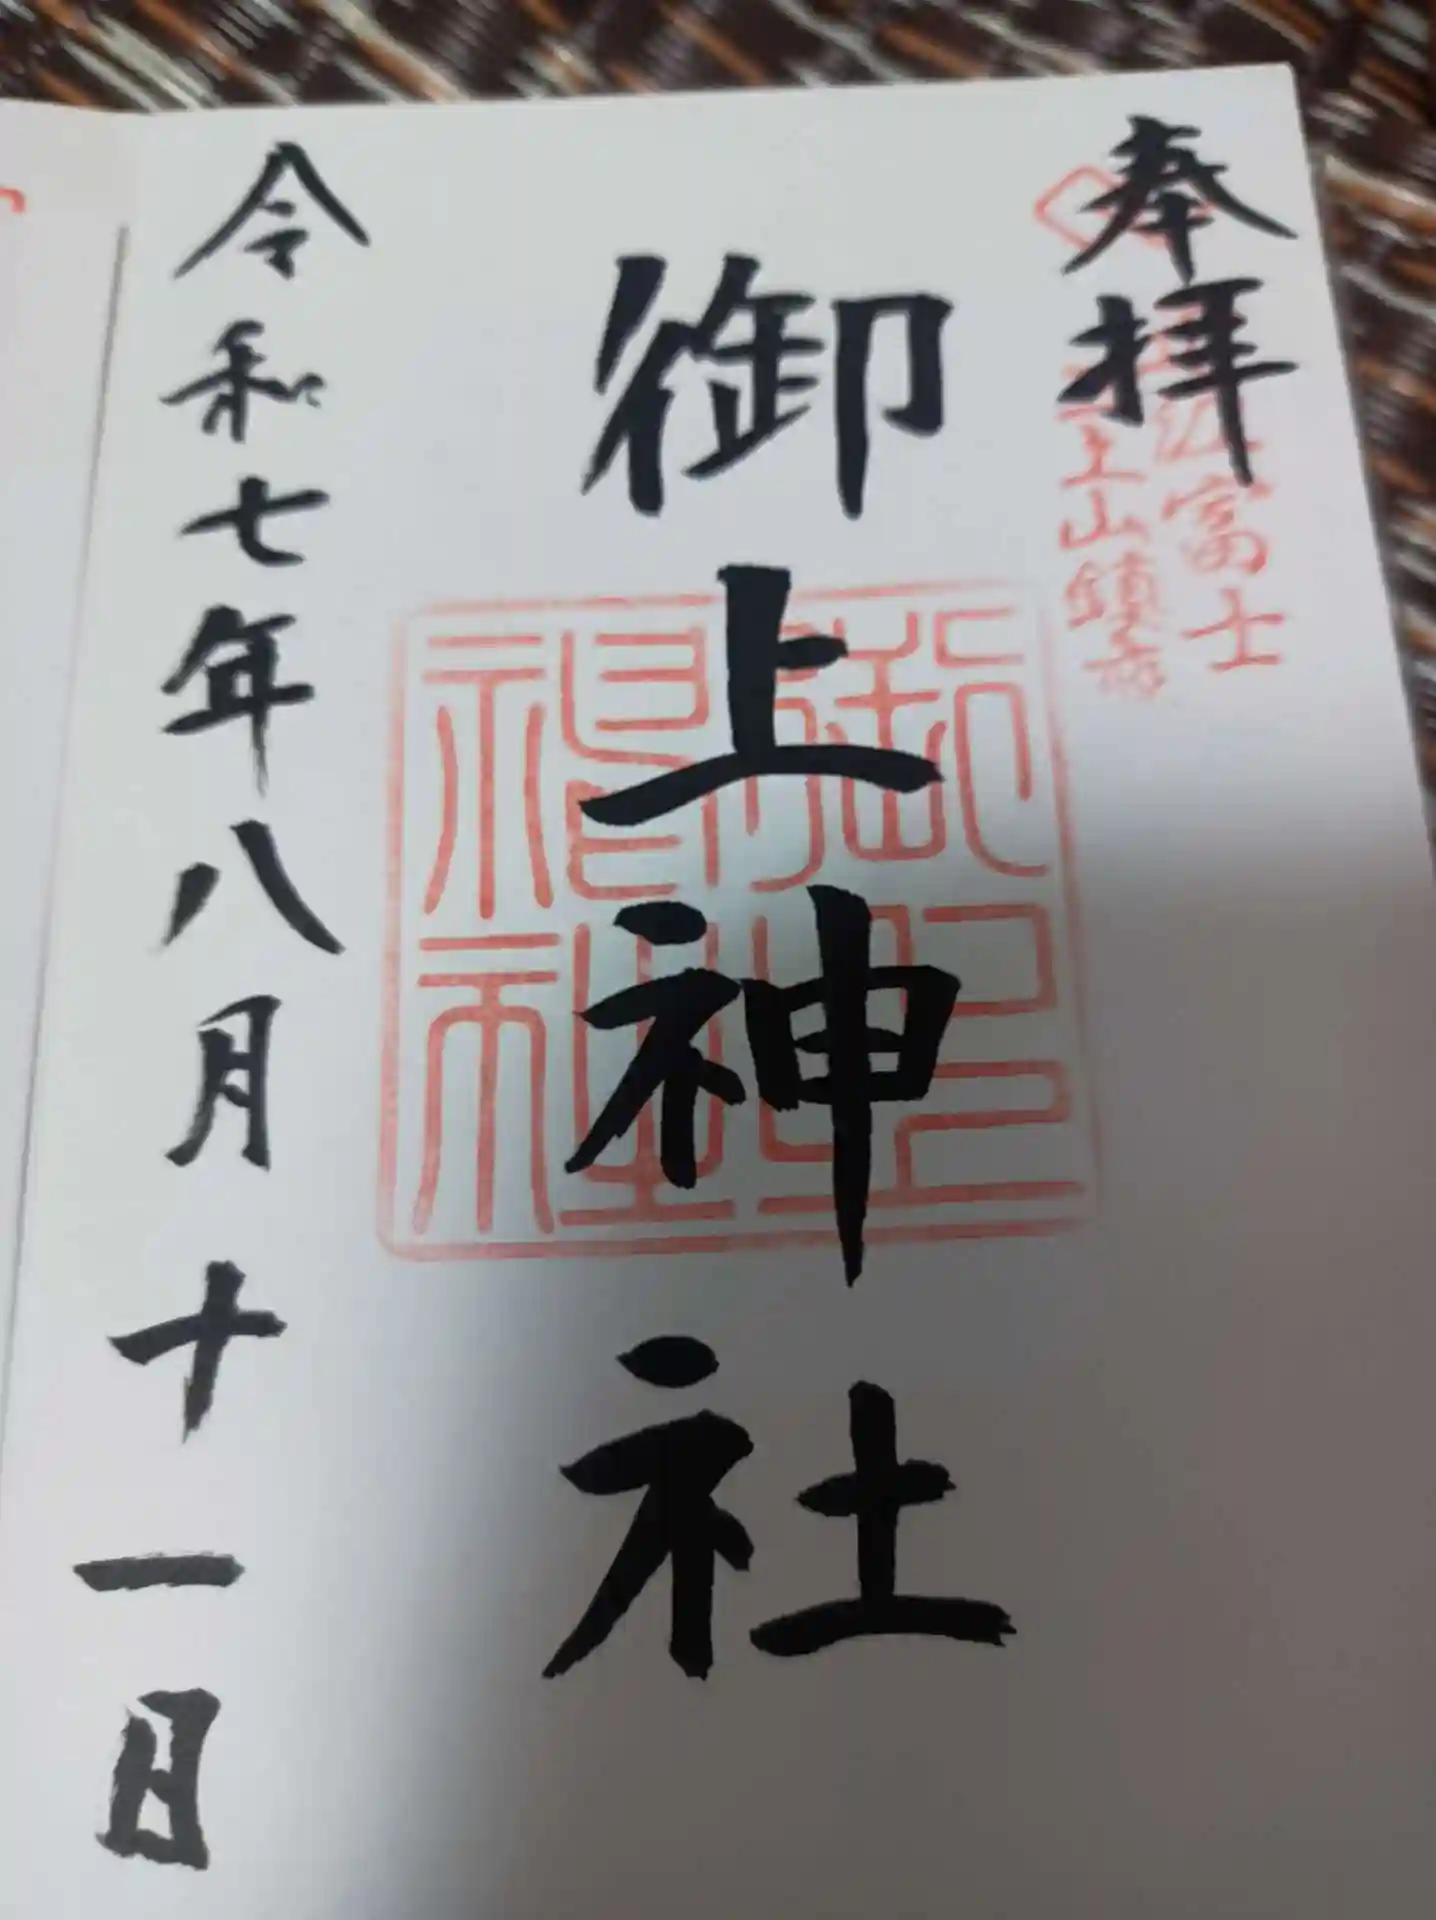 奉拝
近江富士
三上山鎮斎
御上神社
御上神社
令和七年八月十一日